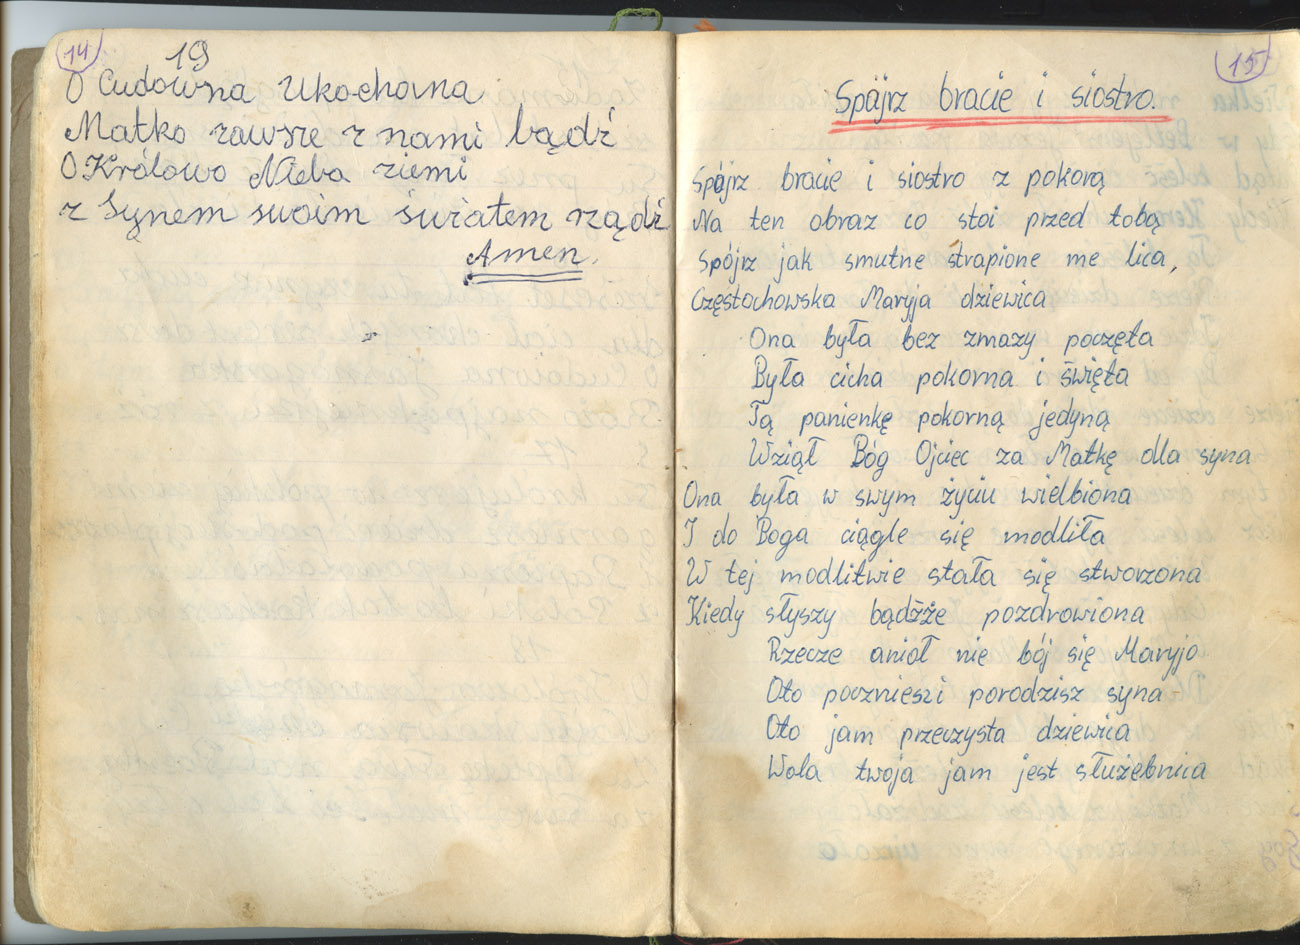 14
19
O Cudowna Ukochana
Matko zawsze z nami bądź
O Królowo Nieba ziemi
z Synem swoim światem rządź
Amen.
15
Spójrz bracie i siostro.
Spójrz bracie i siostro z pokorą
Na ten obraz co stoi przed tobą
Spójrz jak smutne strapione me lica,
Częstochowska Maryja dziewica
Ona była bez zmazy poczęta
Była cicha pokorna i święta
Tą panienkę pokorną jedyną
Wziął Bóg Ojciec za Matkę dla syna
Ona była w swym życiu wielbiona
I do Boga ciągle się modliła
W tej modlitwie stała się stworzona
Kiedy słyszy bądźże pozdrowiona
Rzecze anioł nie bój się Maryjo
Oto poczniesz i porodzisz syna
Oto jam przeczysta dziewica
Wola twoja jam jest służebnica